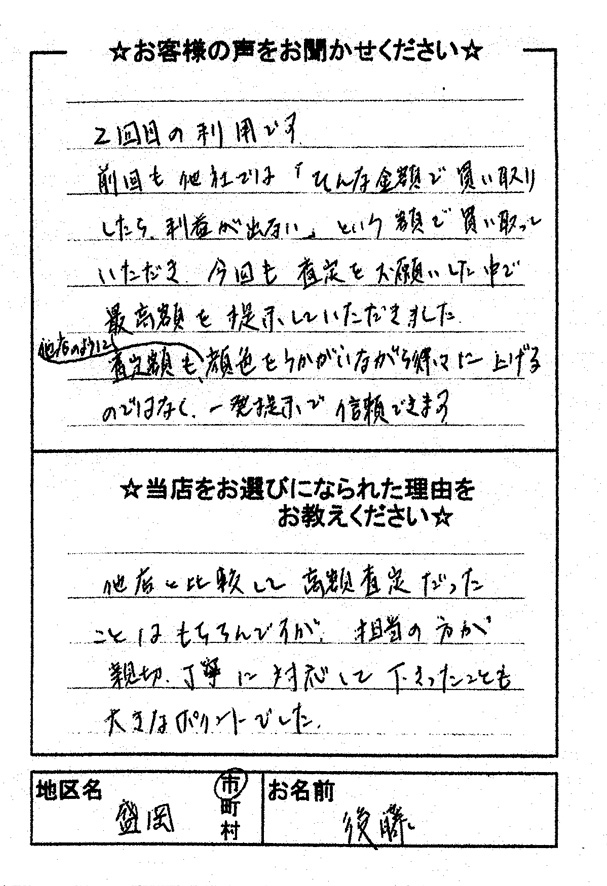 ☆お客様の声をお聞かせください☆
2回目の利用です
前回も他社では「そんな金額で買い取り
したら、利益が出ない」という額で買い取って
いただき、今回も査定をお願いした中で
最高額を提示していただきました。
他店のように
査定額も、顔色をうかがいながら徐々に上げる
のではなく、一発提示で信頼できます
☆当店をお選びになられた理由を
お教えください☆
他店と比較して高額査定だった
ことはもちろんですが、担当の方が
親切、丁寧に対応して下さったことも
大きなポイントでした。
地区名 盛岡 市町村 お名前 後藤